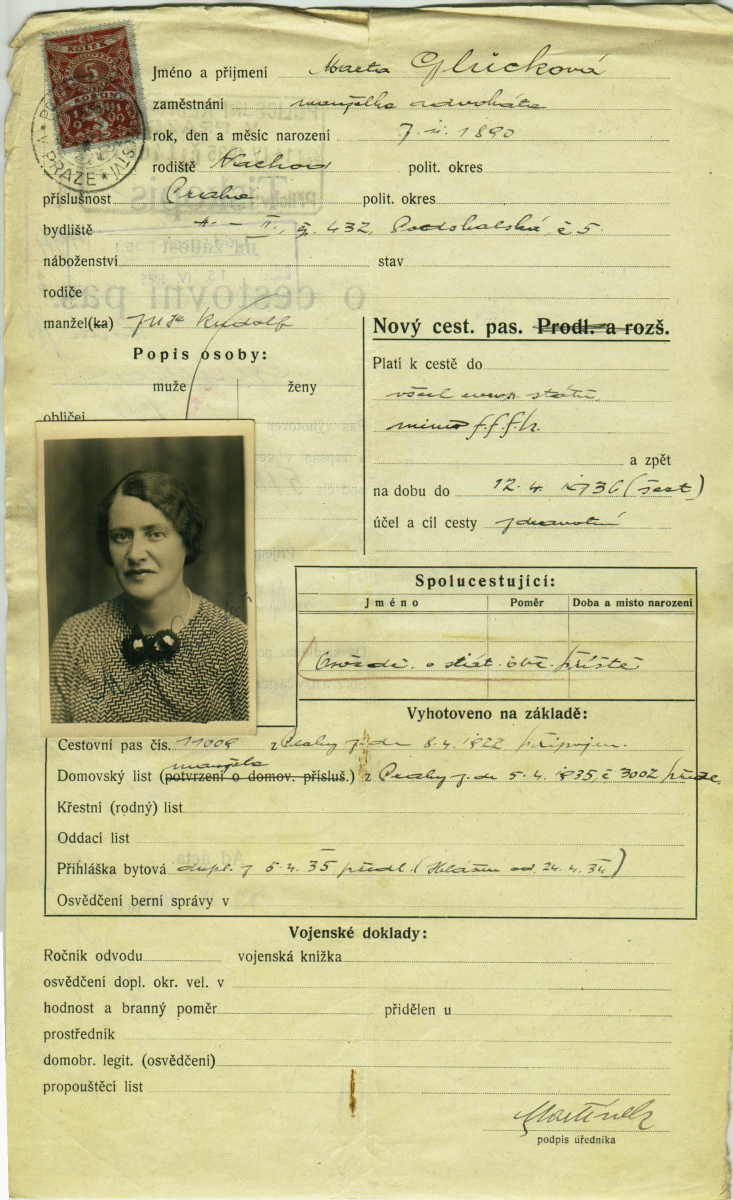 KOLEK
5
PRAZE
Jméno a přijmení Marta Glücková
zaměstnání manželka advokáta
rok, den a měsíc narození 7. II. 1890
rodiště Náchod polit. okres
příslušnost Praha polit. okres
bydliště II., čp. 432, Podskalská, č 5.
náboženství stav
rodiče
manžel(ka) JUDr Rudolf
Nový cest. pas. Prodl. a rozš.
Popis osoby:
muže ženy
obličej
Platí k cestě do
všech evrop. států,
mimo
a zpět
na dobu do 12. 4. 1936 (šest)
účel a cíl cesty zdravotní
Spolucestující:
Jméno Poměr Doba a místo narození
Osvědč. o stát. obč. příště
Vyhotoveno na základě:
Cestovní pas čís. 11009 z Prahy z dne 8. 4. 1922 připojen.
manžela
Domovský list (potvrzení o domov. přísluš.) z Prahy z dne 5. 4. 1935, č 3002
Křestní (rodný) list
Oddací list
Přihláška bytová dupl. z 5. 4. 35 předl. (Hlášen od 24. 4. 34)
Osvědčení berní správy v
Vojenské doklady:
Ročník odvodu vojenská knížka
osvědčení dopl. okr. vel. v
hodnost a branný poměr přidělen u
prostředník
domobr. legit. (osvědčení)
propouštěcí list
Martínek
podpis úředníka